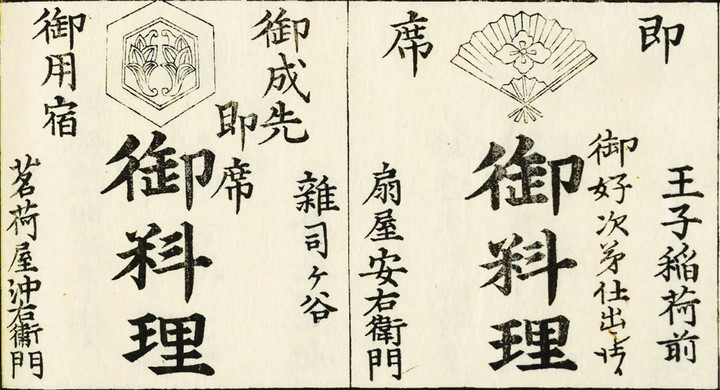 即席
王子稲荷前
御好次第仕出し仕候
御料理
扇屋安右衛門
御成先
御用宿
雑司ヶ谷
即席
御料理
茗荷屋沖右衛門